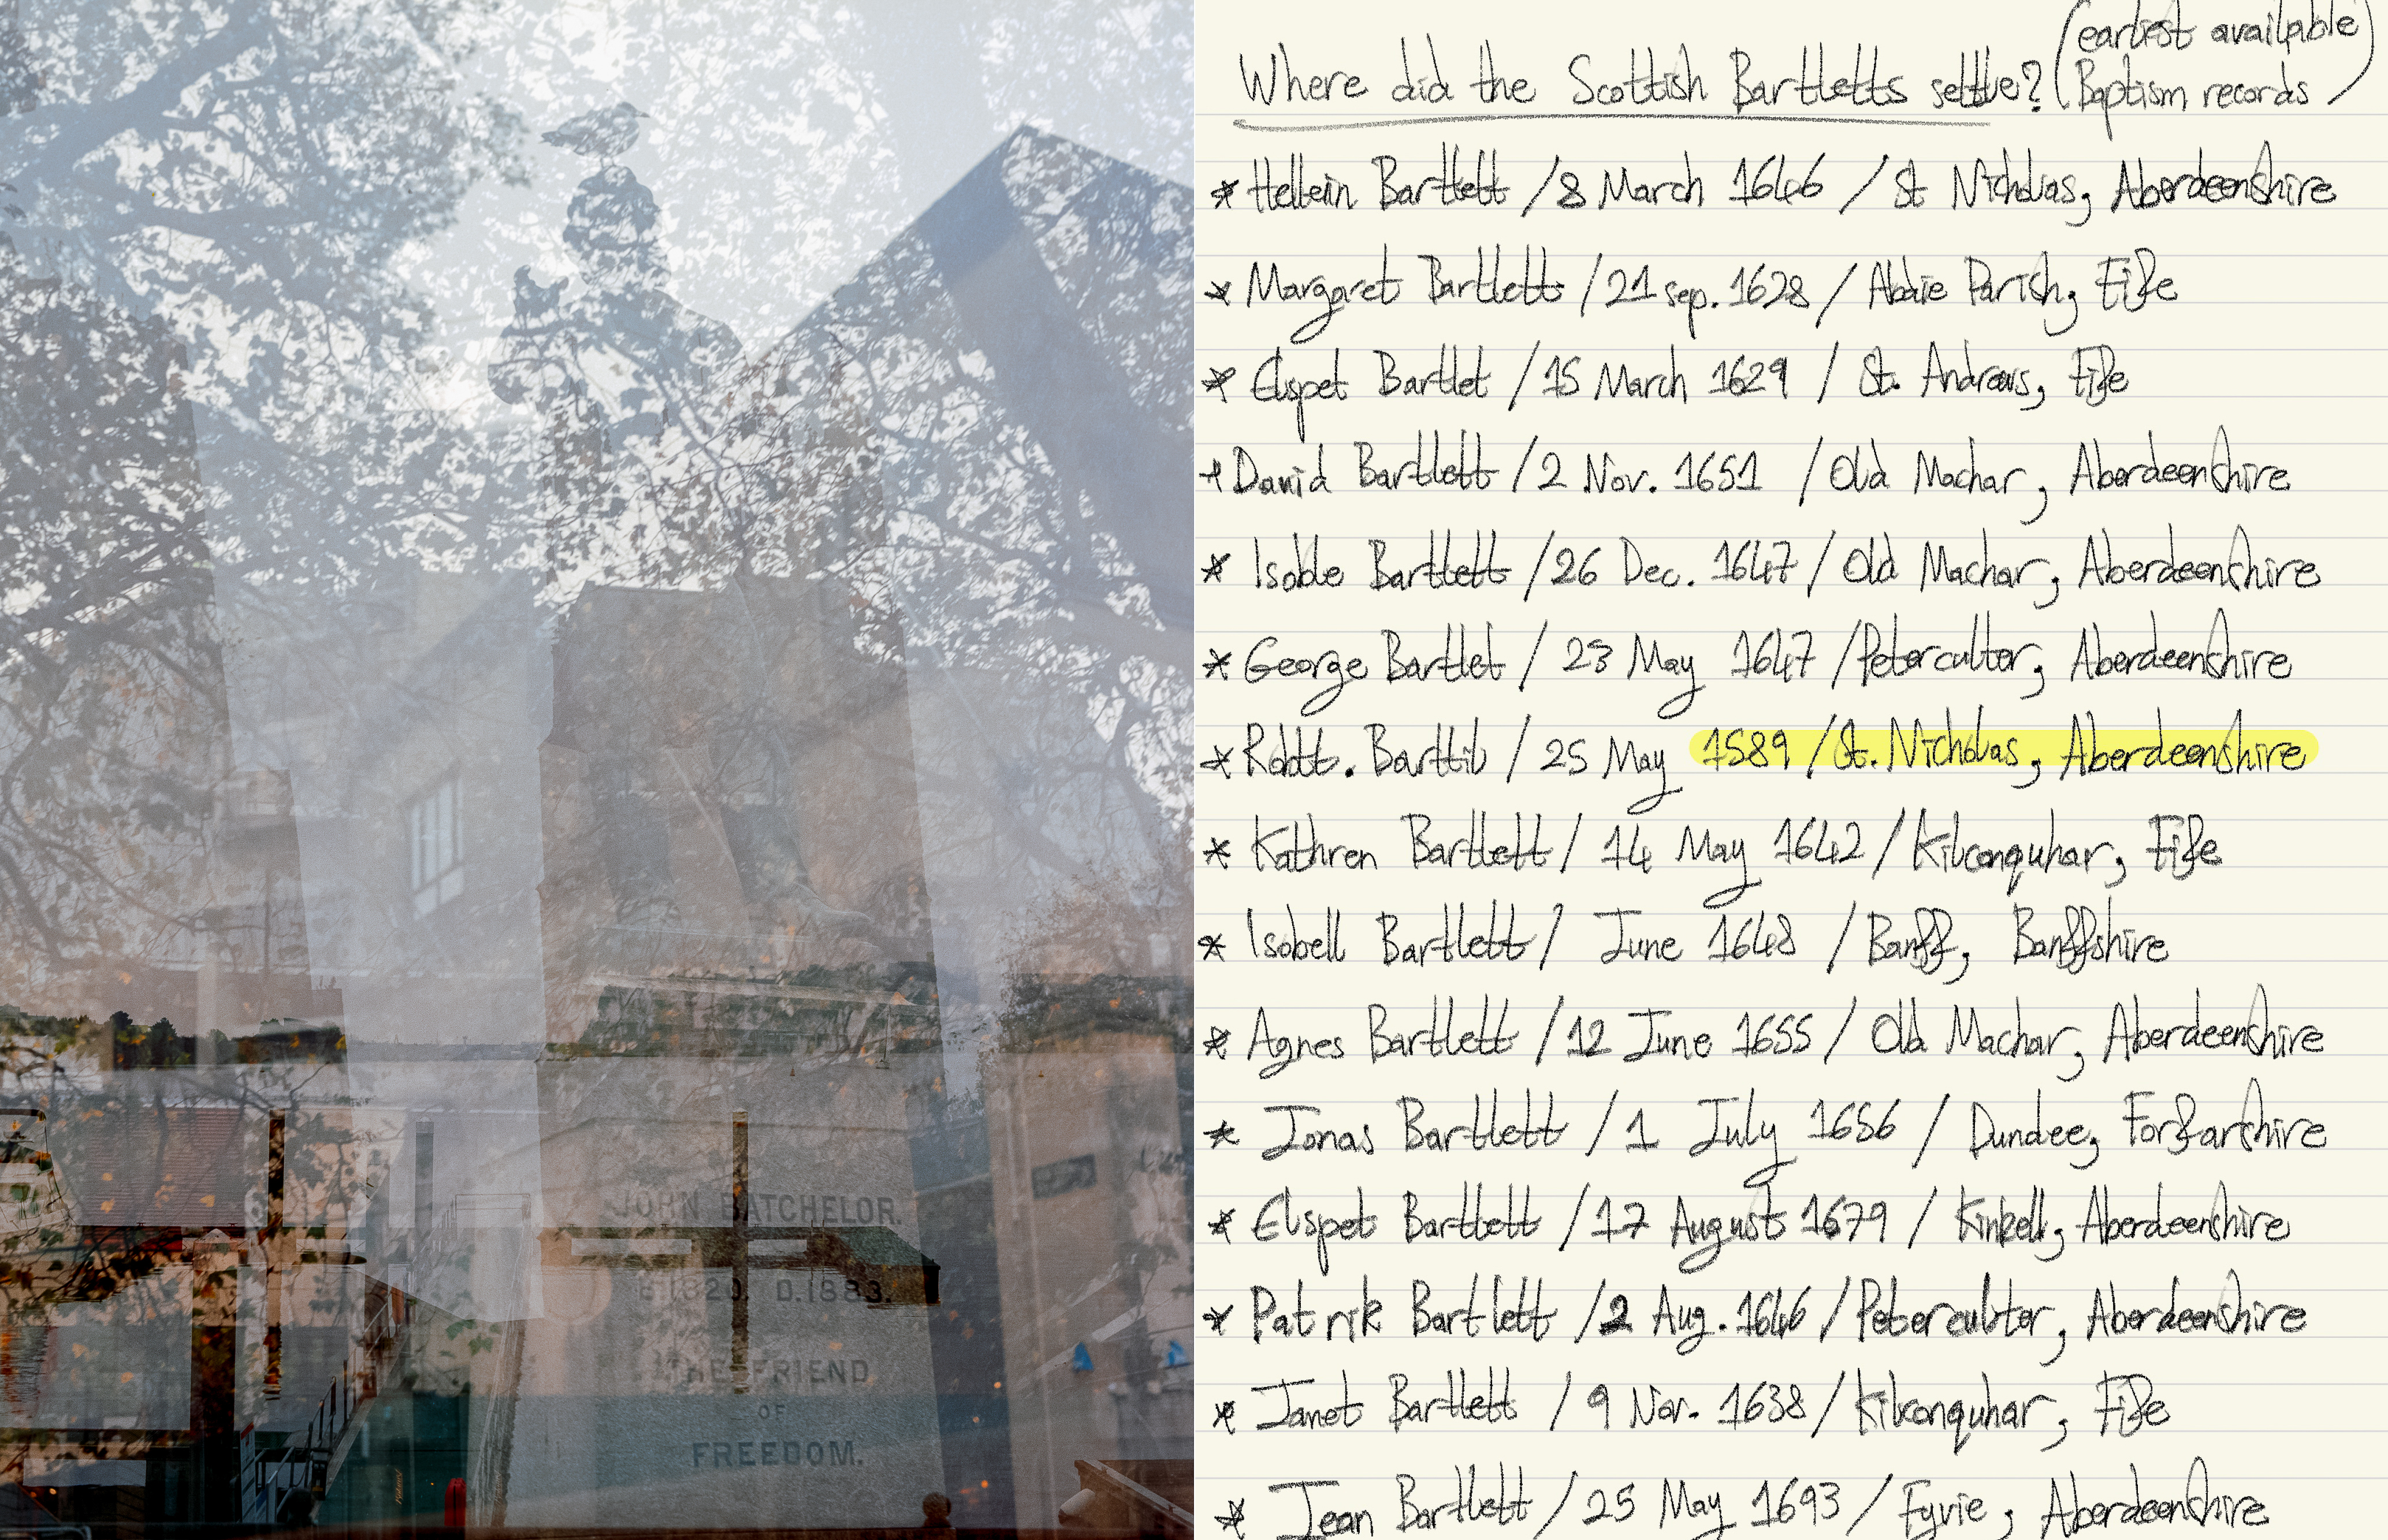 JOHN BATCHELOR.
B.1820. D.1883.
THE FRIEND
OF
FREEDOM.
Where did the Scottish Bartletts settle? (earliest available Baptism records)
* Hellein Bartlett / 8 March 1646 / St Nicholas, Aberdeenshire
* Margaret Bartlett / 21 sep. 1628 / Abdie Parish, Fife
* Elspet Bartlet / 15 March 1629 / St. Andrews, Fife
* David Bartlett / 2 Nov. 1651 / Old Machar, Aberdeenshire
* Isoble Bartlett / 26 Dec. 1647 / Old Machar, Aberdeenshire
* George Bartlet / 23 May 1647 / Peterculter, Aberdeenshire
* Robtt. Barttib / 25 May 1589 / St. Nicholas, Aberdeenshire
* Kathren Bartlett / 14 May 1642 / Kilconquhar, Fife
* Isobell Bartlett / June 1648 / Banff, Banffshire
* Agnes Bartlett / 12 June 1655 / Old Machar, Aberdeenshire
* Jonas Bartlett / 1 July 1656 / Dundee, Forfarshire
* Elspet Bartlett / 17 August 1679 / Kinkell, Aberdeenshire
* Patrik Bartlett / 2 Aug. 1646 / Peterculter, Aberdeenshire
* Janet Bartlett / 9 Nov. 1638 / Kilconquhar, Fife
* Jean Bartlett / 25 May 1693 / Fyvie, Aberdeenshire